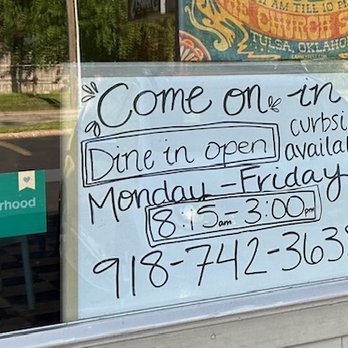 AM TILL 10 P
THE CHURCH S
TULSA, OKLAHOM
Come on in
Dine in open
curbsi
availab
Monday - Friday
8:15am - 3:00pm
918-742-363
rhood